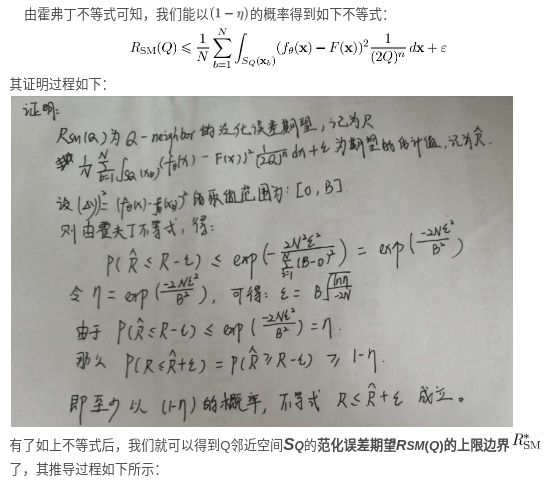 由霍弗丁不等式可知，我们能以(1 − η)的概率得到如下不等式：
R_SM(Q) ⩽ 1/N ∑_{b=1}^{N} ∫_{S_Q(x_b)} (f_θ(x) − F(x))² 1/(2Q)ⁿ dx + ε
其证明过程如下：
证明:
R_SM(Q) 为 Q-neighbor 的泛化误差期望，记为R
1/N ∑_{i=1}^{N} ∫_{SQ(x_b)} (f_θ(x) − F(x))² 1/(2Q)ⁿ dx + ε 为期望的估计值，记为R̂.
设 (Δy)² = (f_θ(x) − (x_b))² 的取值范围为: [0, B]
则由霍夫丁不等式，得:
P(R̂ ≤ R−ε) ≤ exp(− 2N²ε² / ∑_{i=1}^{N}(B−0)²) = exp(−2Nε²/B²)
令 η = exp(−2Nε²/B²)，可得: ε = B√(lnη/−2N)
由于 P(R̂ ≤ R−ε) ≤ exp(−2Nε²/B²) = η.
那么 P(R ≤ R̂+ε) = P(R̂ ≥ R−ε) ≥ 1−η.
即至少以 (1−η) 的概率，不等式 R ≤ R̂ + ε 成立。
有了如上不等式后，我们就可以得到Q邻近空间SQ的范化误差期望RSM(Q)的上限边界 R*_SM
了，其推导过程如下所示：